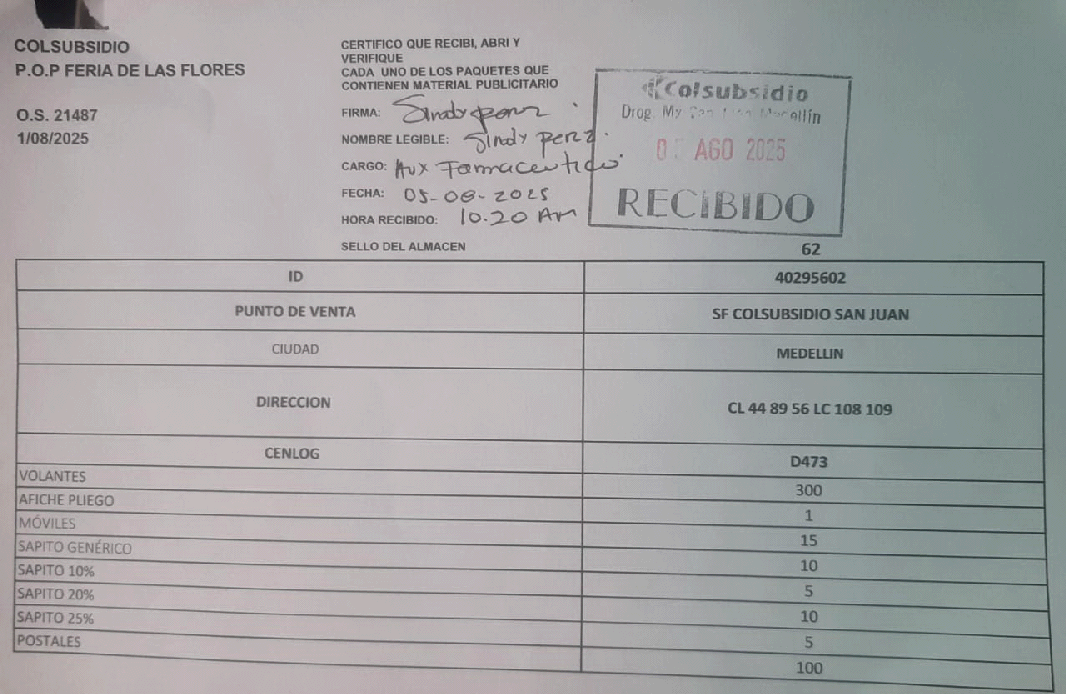 COLSUBSIDIO
P.O.P FERIA DE LAS FLORES
O.S. 21487
1/08/2025
CERTIFICO QUE RECIBI, ABRI Y
VERIFIQUE
CADA UNO DE LOS PAQUETES QUE
CONTIENEN MATERIAL PUBLICITARIO
FIRMA: Sindy perez
NOMBRE LEGIBLE: Sindy perez
CARGO: Aux Farmaceutico
FECHA: 05-08-2025
HORA RECIBIDO: 10.20 Am
SELLO DEL ALMACEN
Colsubsidio
Drog. My San Juan Medellín
AGO 2025
RECIBIDO
62
ID 40295602
PUNTO DE VENTA SF COLSUBSIDIO SAN JUAN
CIUDAD MEDELLIN
DIRECCION CL 44 89 56 LC 108 109
CENLOG D473
VOLANTES 300
AFICHE PLIEGO 1
MÓVILES 15
SAPITO GENÉRICO 10
SAPITO 10% 5
SAPITO 20% 10
SAPITO 25% 5
POSTALES 100